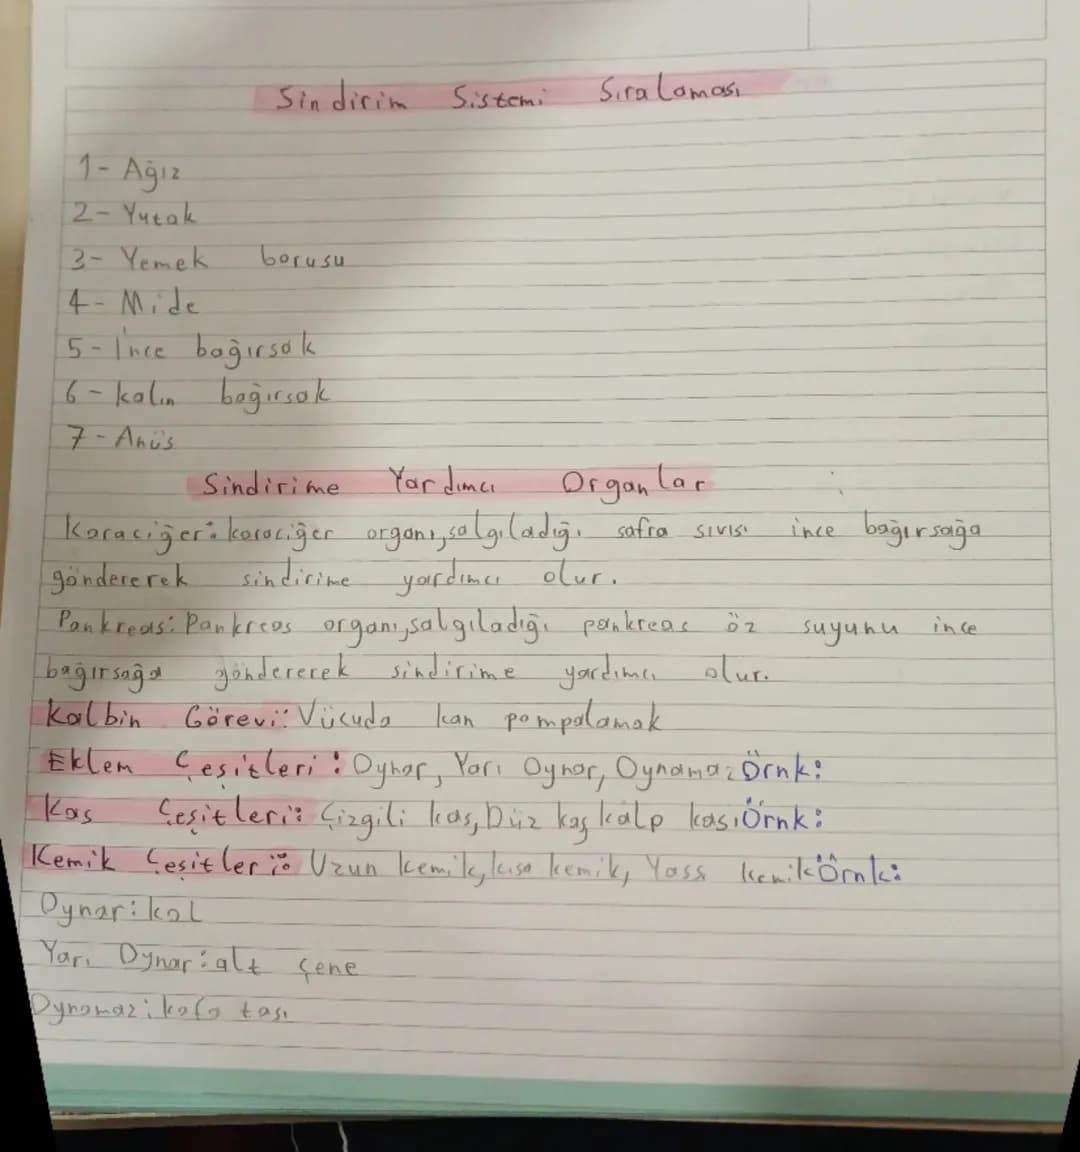 Sindirim Sistemi Sıralaması
1- Ağız
2- Yutak
3- Yemek borusu
4- Mide
5- İnce bağırsak
6- kalın bağırsak
7- Anüs
Sindirime Yardımcı Organlar
Karaciğer: karaciğer organı, salgıladığı safra sıvısı ince bağırsağa
göndererek sindirime yardımcı olur.
Pankreas: Pankreas organı, salgıladığı pankreas öz suyunu ince
bağırsağa göndererek sindirime yardımcı olur.
Kalbin Görevi: Vücuda kan pompalamak
Eklem Çeşitleri: Oynar, Yarı Oynar, Oynamaz Örnk:
Kas Çeşitleri: Çizgili kas, Düz kas, kalp kası Örnk:
Kemik Çeşitleri: Uzun kemik, kısa kemik, Yassı kemik Örnk:
Oynar: kol
Yarı Oynar: alt çene
Oynamaz: kafa tası